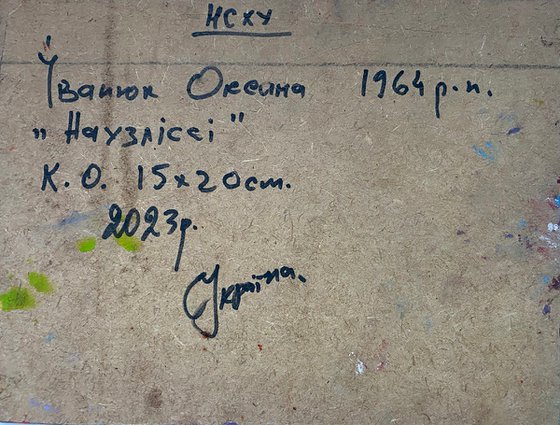 НСХУ
Іванюк Оксана 1964 р.н.
„Наузліссі"
К.О. 15х20см.
2023р.
Україна.